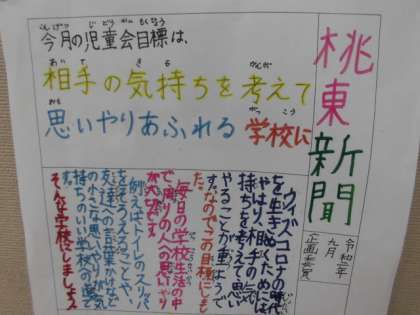 桃東新聞
令和二年
九月
企画委員
今月の児童会目標は、
相手の気持ちを考えて
思いやりあふれる 学校に
ウィズコロナの時代
を生きぬくためには
やはり、相手の気
持ちを考えて思い
やることが重ようで
す。なのでこの目標にしまし
た。
毎日の学校生活の中
で周りの人への思いやり
が大切です。
例えばトイレのスリッパ
をそろえることや、
友達への言葉かけなど
の小さな思いやりが気
持ちのいい学校への道で
す。
そんな学校にしましょう。